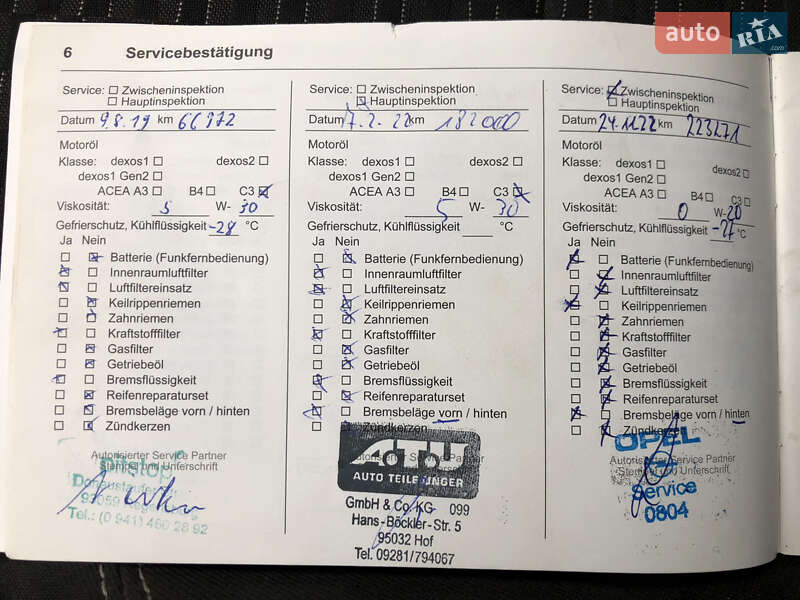 auto RIA.com
6 Servicebestätigung
Service: Zwischeninspektion
Hauptinspektion
Datum 9.8.19 km 66972
Motoröl
Klasse: dexos1 dexos2
dexos1 Gen2
ACEA A3 B4 C3
Viskosität: 5 W- 30
Gefrierschutz, Kühlflüssigkeit -28 °C
Ja Nein
Batterie (Funkfernbedienung)
Innenraumluftfilter
Luftfiltereinsatz
Keilrippenriemen
Zahnriemen
Kraftstofffilter
Gasfilter
Getriebeöl
Bremsflüssigkeit
Reifenreparaturset
Bremsbeläge vorn / hinten
Zündkerzen
Autorisierter Service Partner
Stempel und Unterschrift
Tel.: (0 941) 460 28 92
Service: Zwischeninspektion
Hauptinspektion
Datum 17.2.22 km 182000
Motoröl
Klasse: dexos1 dexos2
dexos1 Gen2
ACEA A3 B4 C3
Viskosität: 5 W- 30
Gefrierschutz, Kühlflüssigkeit °C
Ja Nein
Batterie (Funkfernbedienung)
Innenraumluftfilter
Luftfiltereinsatz
Keilrippenriemen
Zahnriemen
Kraftstofffilter
Gasfilter
Getriebeöl
Bremsflüssigkeit
Reifenreparaturset
Bremsbeläge vorn / hinten
Zündkerzen
ATU
AUTO TEILE UNGER
GmbH & Co. KG 099
Hans-Böckler-Str. 5
95032 Hof
Tel. 09281/794067
Service: Zwischeninspektion
Hauptinspektion
Datum 24.11.22 km 223271
Motoröl
Klasse: dexos1 dexos2
dexos1 Gen2
ACEA A3 B4 C3
Viskosität: 0 W- 20
Gefrierschutz, Kühlflüssigkeit -27 °C
Ja Nein
Batterie (Funkfernbedienung)
Innenraumluftfilter
Luftfiltereinsatz
Keilrippenriemen
Zahnriemen
Kraftstofffilter
Gasfilter
Getriebeöl
Bremsflüssigkeit
Reifenreparaturset
Bremsbeläge vorn / hinten
Zündkerzen
OPEL
Autorisierter Service Partner
Stempel und Unterschrift
Service
0804